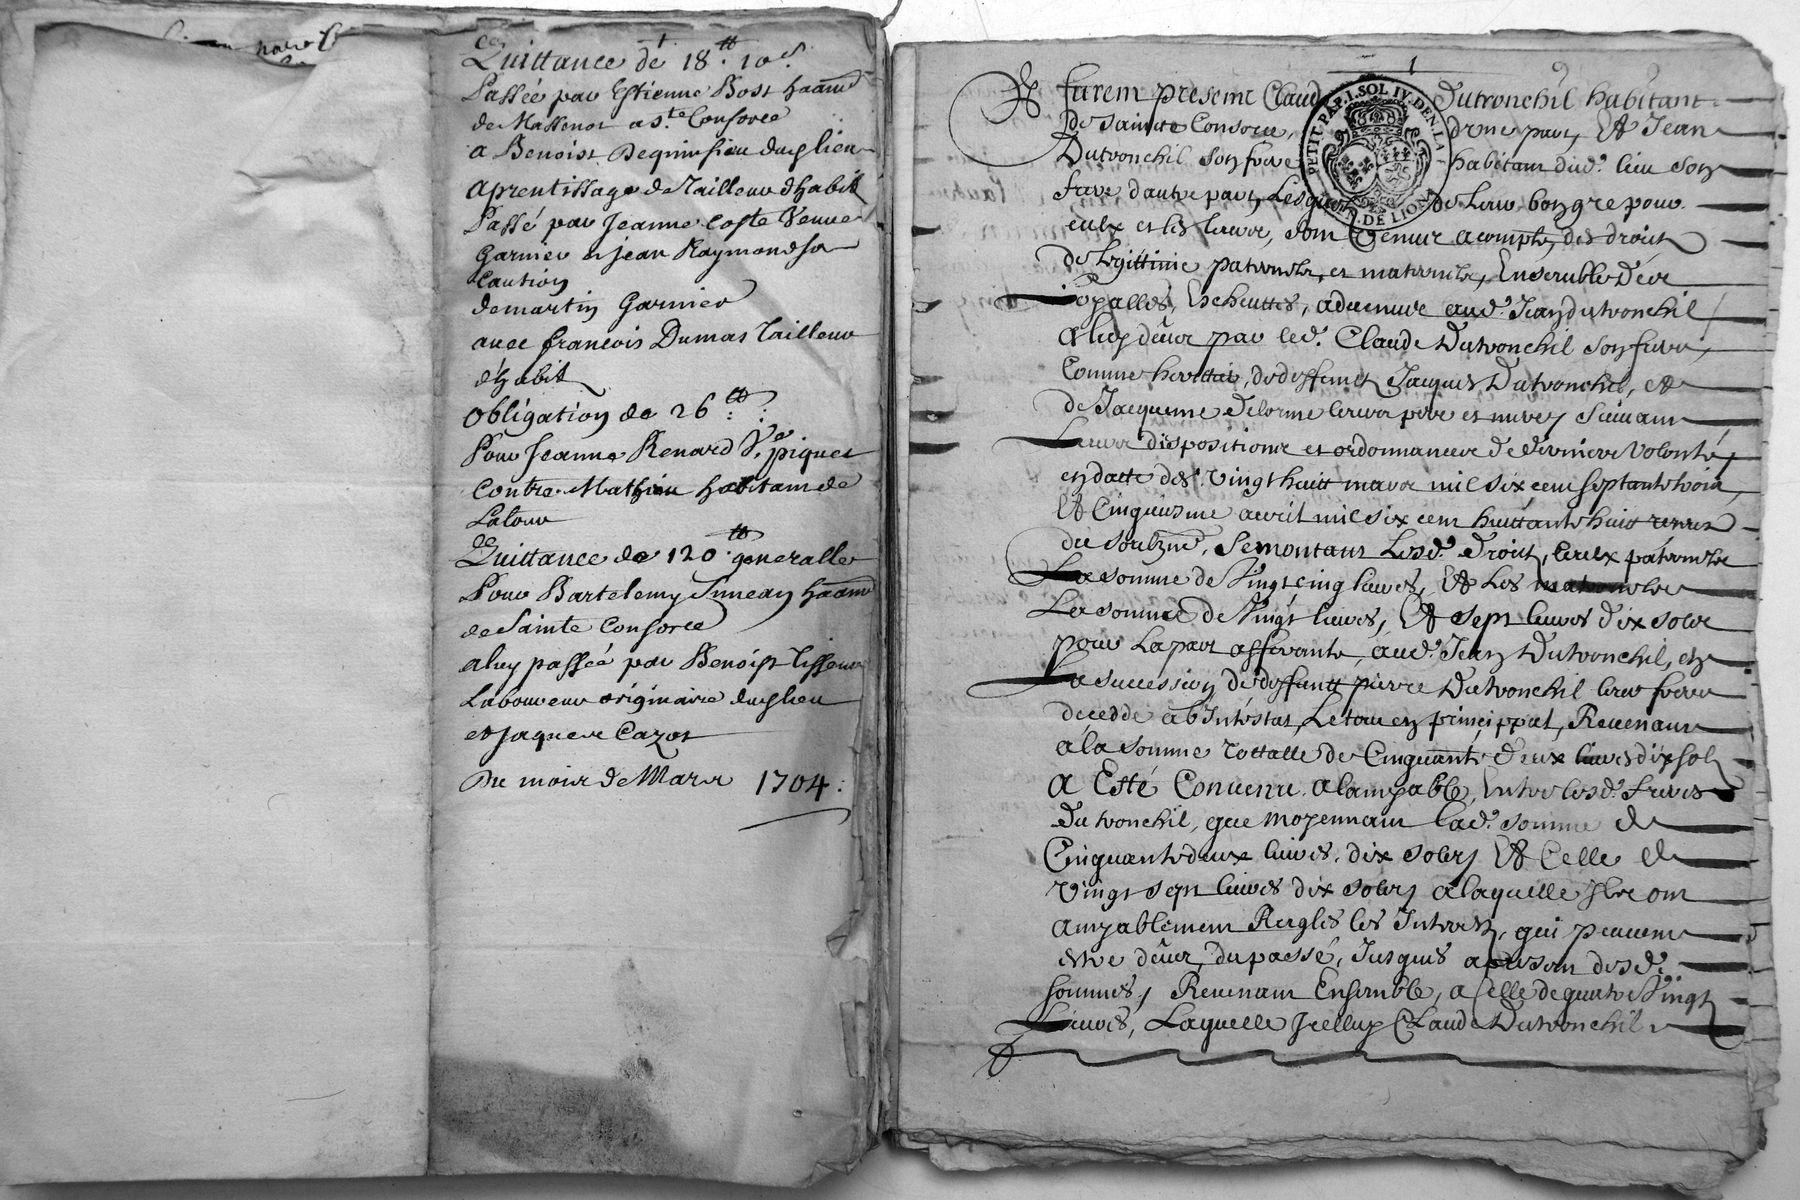 Quittance de 18 tt 10 s.
Passée par Estienne Bost haant
de Massenot a Ste Consorce
a Benoist Dequinsieu dud lieu
aprentissage de Tailleur dhabit
Passé par Jeanne Coste Veuve
Garnier & Jean Raymond sa
Caution
de martin Garnier
avec francois Dumas Tailleur
d'habit
obligation de 26 tt
Pour Jeanne Renard Ve piquet
Contre Mathieu habitant de
Latour
Quittance de 120 tt generalle
Pour Bartelemy haant
de Sainte Consorce
a luy passée par Benoist Tisseur
Laboureur originaire dud lieu
et Jaqueme Cazot
Du mois de Mars 1704
1
PETIT PAP. I. SOL IV. DEN. LA F.
GEN. DE LION
Furent presens Claude Dutronchil habitant
de Sainte Consorce, dune part, Et Jean
Dutronchil son frere habitant dud. lieu son
frere dautre part, Lesquels de Leur bon gre pour
eulx et les leurs, sont venus a compte, des droits
de legittime paternels, et maternels, Ensemble de
Escheuttes, advenus aud. Jean dutronchil
et luy deus par led. Claude Dutronchil son frere,
Comme heritier, de deffunct Jacques Dutronchil, et
de Jacqueme Delorme leurs pere et mere, suivant
Leurs dispositions et ordonnances de derniere Volonté,
en datte des vingt huitt mars mil six cent septante trois,
Et Cinquiesme avril mil six cent huittante huit receus
du soubzné, se montans Lesd. Droits, Ceulx paternels
La somme de Vingt cinq livres, Et Les maternels
La somme de Vingt livres, Et sept livres dix sols
pour La part afferante, aud. Jean Dutronchil, en
La succession de deffuntt pierre Dutronchil leur frere
decedde ab Intestat, Le tout en princippal, Revenant
a la somme Tottalle de Cinquante deux livres dix sols
A Esté Convenu a lamyable, Entre lesd. freres
Dutronchil, que moyennant lad. somme de
Cinquante deux livres, dix sols, Et Celle de
Vingt sept livres dix sols, a laquelle Ils ont
amyablement Reglés les Interets, qui peuvent
estre deus, du passé, Jusques a present desd.
sommes, Revenant Ensemble, a Celle de quatre Vingt
Livres, Laquelle Icelluy Claude Dutronchil